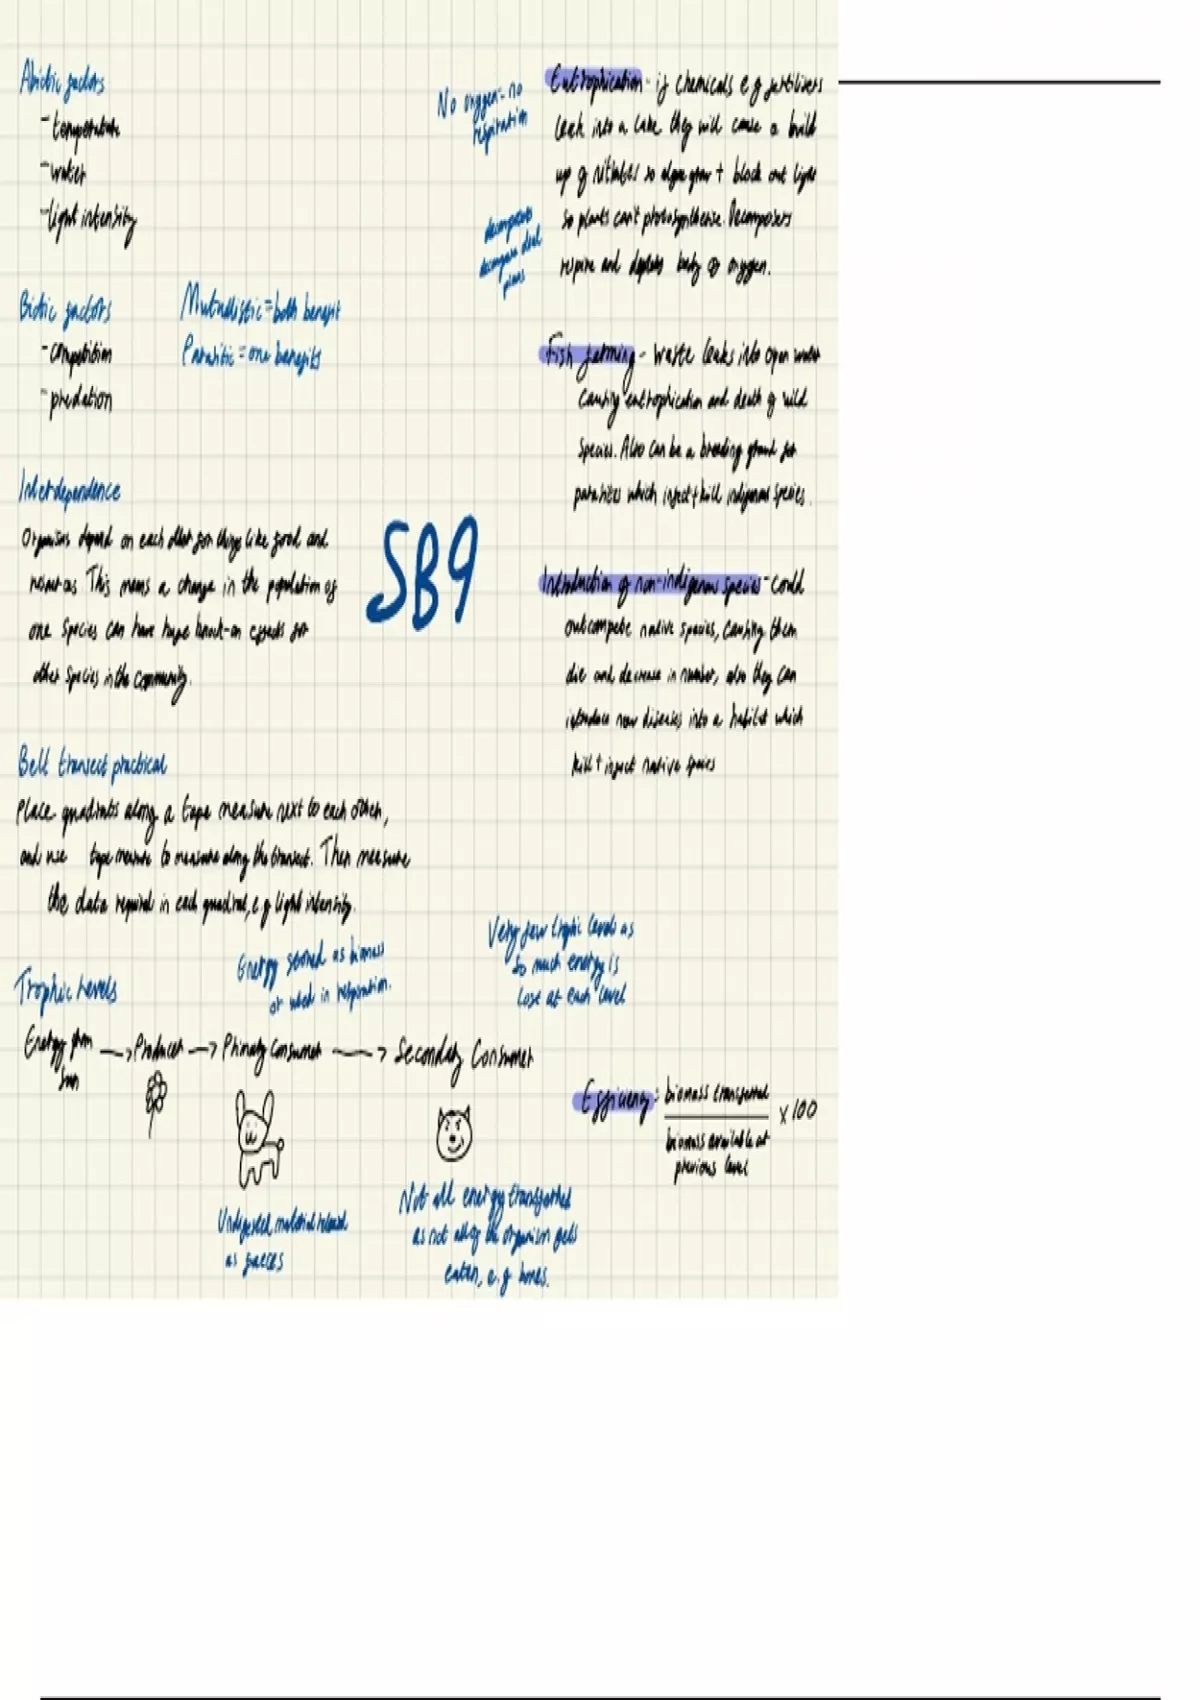 Abiotic factors
- temperature
- water
- light intensity
Biotic factors
- competition
- predation
Mutualistic = both benefit
Parasitic = one benefits
Interdependence
Organisms depend on each other for things like food and
This means a change in the population of
one species can have huge knock-on effects for
other species in the community.
SB9
Belt transect practical
Place quadrats along a tape measure next to each other,
and use tape measure to measure along the transect. Then measure
the data required in each quadrat, e.g light intensity.
Trophic Levels
Energy stored as biomass
or used in respiration.
Very few trophic levels as
so much energy is
lost at each level
Energy from
sun
-> Producer -> Primary Consumer -> Secondary Consumer
Undigested material released
as faeces
Not all energy transferred
as not all of the organism gets
eaten, e.g bones.
Efficiency = biomass transferred
x100
biomass available at
previous level
No oxygen = no
respiration
decompose dead
plants
Eutrophication - if chemicals e.g fertilisers
leak into a lake they will cause a build
up of nitrates so algae grow + block out light
so plants can't photosynthesise. Decomposers
respire and deplete body of oxygen.
Fish farming - waste leaks into open water
causing eutrophication and death of wild
species. Also can be a breeding ground for
parasites which infect + kill indigenous species.
Introduction of non-indigenous species - could
outcompete native species, causing them
die and decrease in number, also they can
introduce new diseases into a habitat which
kill + infect native species